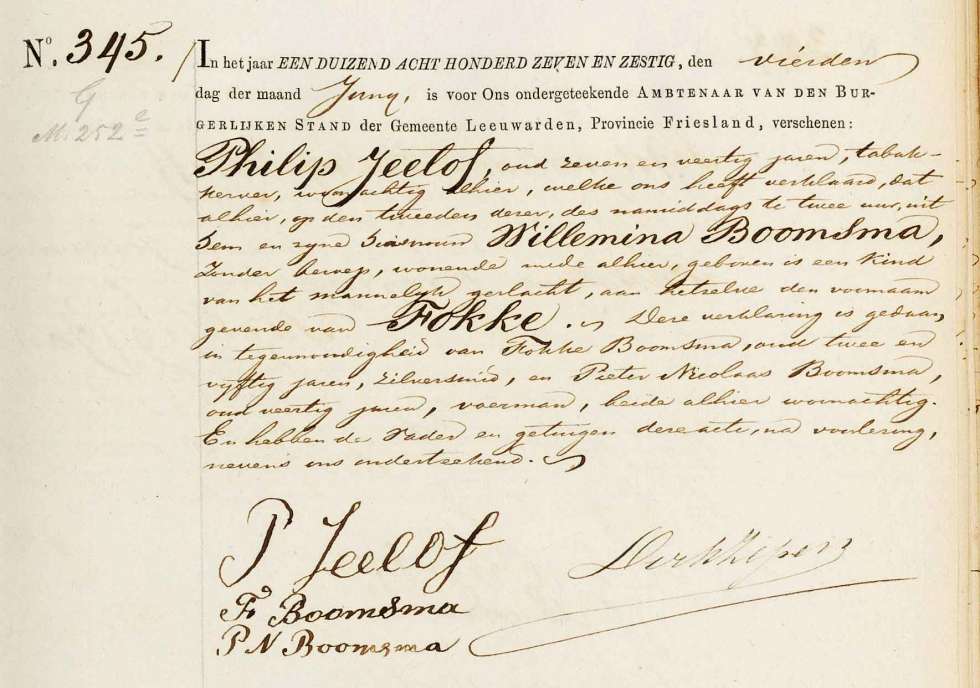 No. 345.
In het jaar EEN DUIZEND ACHT HONDERD ZEVEN EN ZESTIG, den vierden
G
M. 252e
dag der maand Juny, is voor Ons ondergeteekende AMBTENAAR VAN DEN BUR-
GERLIJKEN STAND der Gemeente Leeuwarden, Provincie Friesland, verschenen:
Philip Jeelof, oud zeven en veertig jaren, tabak-
kerver, woonachtig alhier, welke ons heeft verklaard, dat
alhier, op den tweeden dezer, des namiddags te twee uur, uit
hem en zyne huisvrouw Willemina Boomsma,
zonder beroep, wonende mede alhier, geboren is een kind
van het mannelyk geslacht, aan hetzelve den voornaam
gevende van Fokke. Deze verklaring is gedaan,
in tegenwoordigheid van Fokke Boomsma, oud twee en
vyftig jaren, zilversmid, en Pieter Nicolaas Boomsma,
oud veertig jaren, voerman, beide alhier woonachtig.
En hebben de vader en getuigen deze acte, na voorlezing,
nevens ons onderteekend.
P Jeelof
F Boomsma
P N Boomsma